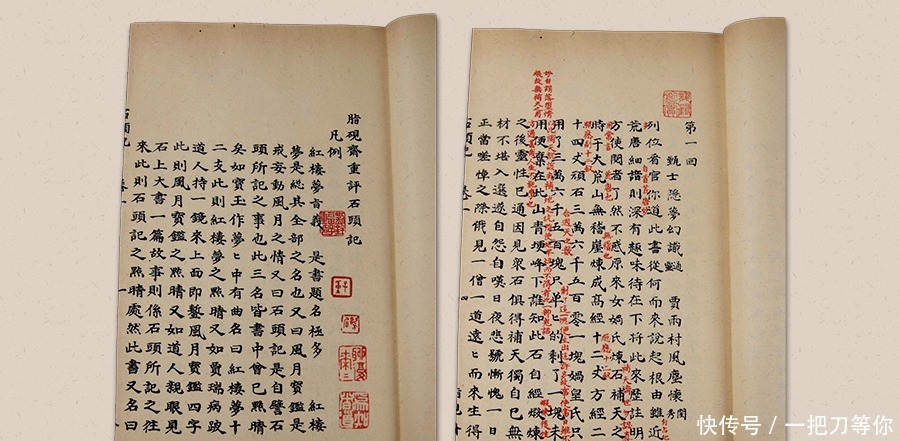 脂硯齋重評石頭記
凡例
紅樓夢旨義 是書題名極多 紅樓
夢是總其全部之名也又曰風月寶鑑是
戒妄動風月之情又曰石頭記是自譬石
頭所記之事也此三名皆書中曾已點睛
矣如寶玉作夢ヒ中有曲名曰紅樓夢十
二支此則紅樓夢之點睛又如賈瑞病跛
道人持一鏡來上面即鏨風月寶鑑四字
此則風月寶鑑之點睛又如道人親眼見
石上大書一篇故事則係石頭所記之往
來此則石頭記之點睛處然此書又名曰
石頭記 卷一 一
第一回
甄士隱夢幻識通 賈雨村風塵懷閨
列位看官你道此書從何而來說起根由雖近
荒唐細諳則深有趣味待在下將此來歷註明
方使閱者了然不惑原來女媧氏煉石補天之
時于大荒山無稽崖煉成高經十二丈方經二
十四丈頑石三萬六千五百零一塊媧皇氏只
用了三萬六千五百塊只單ヒ的剩了一塊未
用便棄在此山青埂峰下誰知此石自經煅煉
之後靈性已通因見衆石俱得補天獨自己無
材不堪入選遂自怨自嘆日夜悲號慚愧一日
正當嗟悼之際俄見一僧一道遠ヒ而來生得
石頭記 卷一 四
快传号 / 一把刀等你